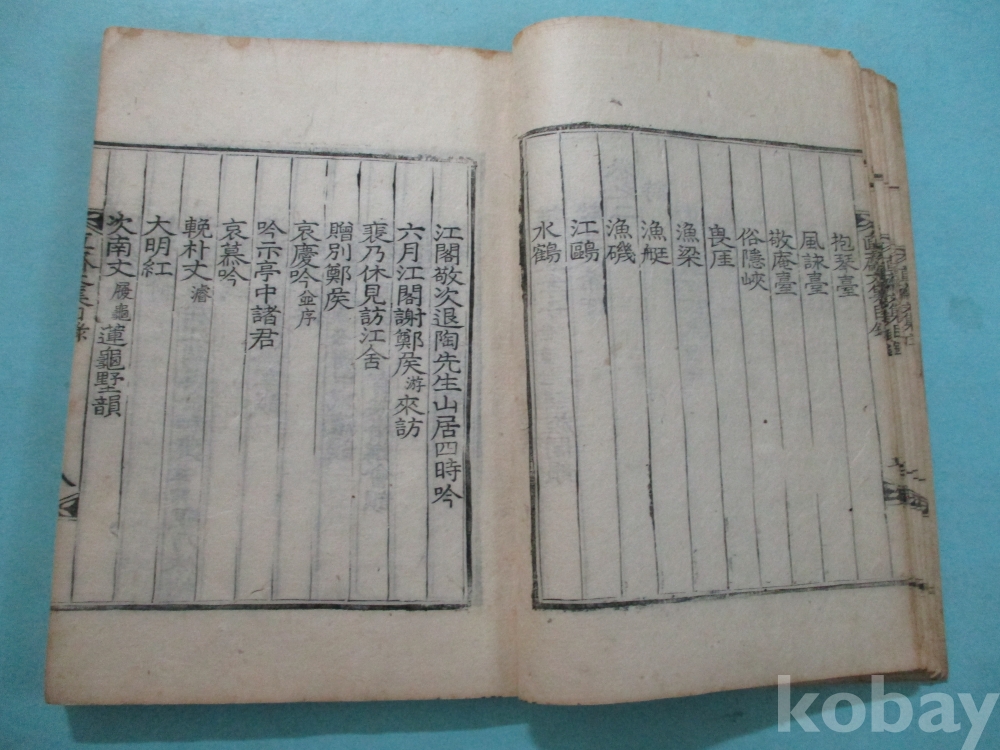 抱琴臺
風詠臺
敬庵臺
俗隱峽
喪厓
漁梁
漁艇
漁磯
江鷗
水鶴
江閣敬次退陶先生山居四時吟
六月江閣謝鄭侯游來訪
裵乃休見訪江舍
贈別鄭侯
哀慶吟並序
吟示亭中諸君
哀慕吟
輓朴丈㵢
大明紅
次南丈履龜蓮龜墅韻
kobay